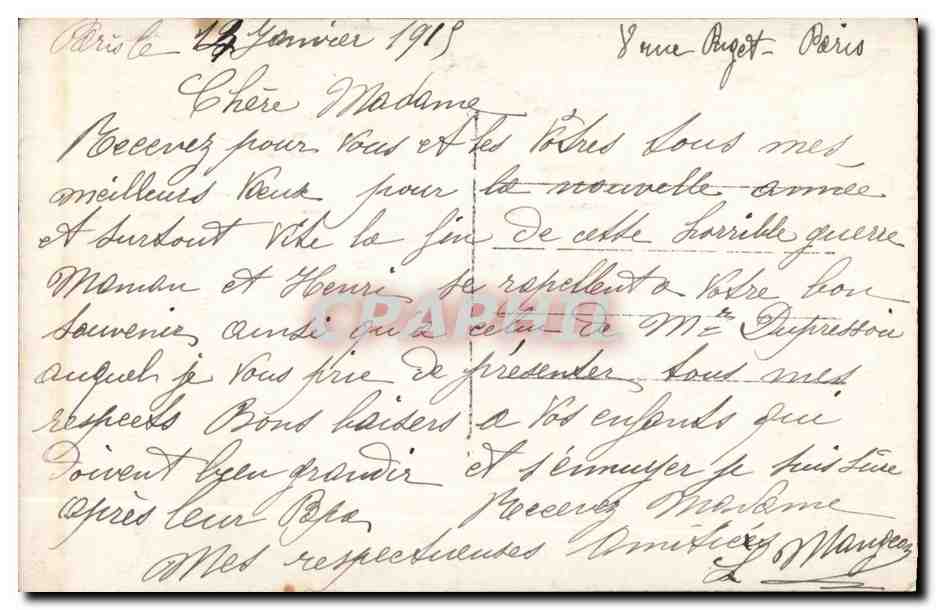 Paris le 12 Janvier 1915 8 rue Puget - Paris
Chère Madame
Recevez pour vous et les vôtres tous mes
meilleurs vœux pour la nouvelle année
et surtout vite la fin de cette horrible guerre
Maman et Henri se rapellent a votre bon
souvenir ainsi qu'à celui de Mr Dupressoir
auquel je vous prie de présenter tous mes
respects Bons baisers a vos enfants qui
doivent bien grandir et s'ennuyer je suis sûre
après leur Papa Recevez Madame
Mes respectueuses amitiés
CPAPHIL